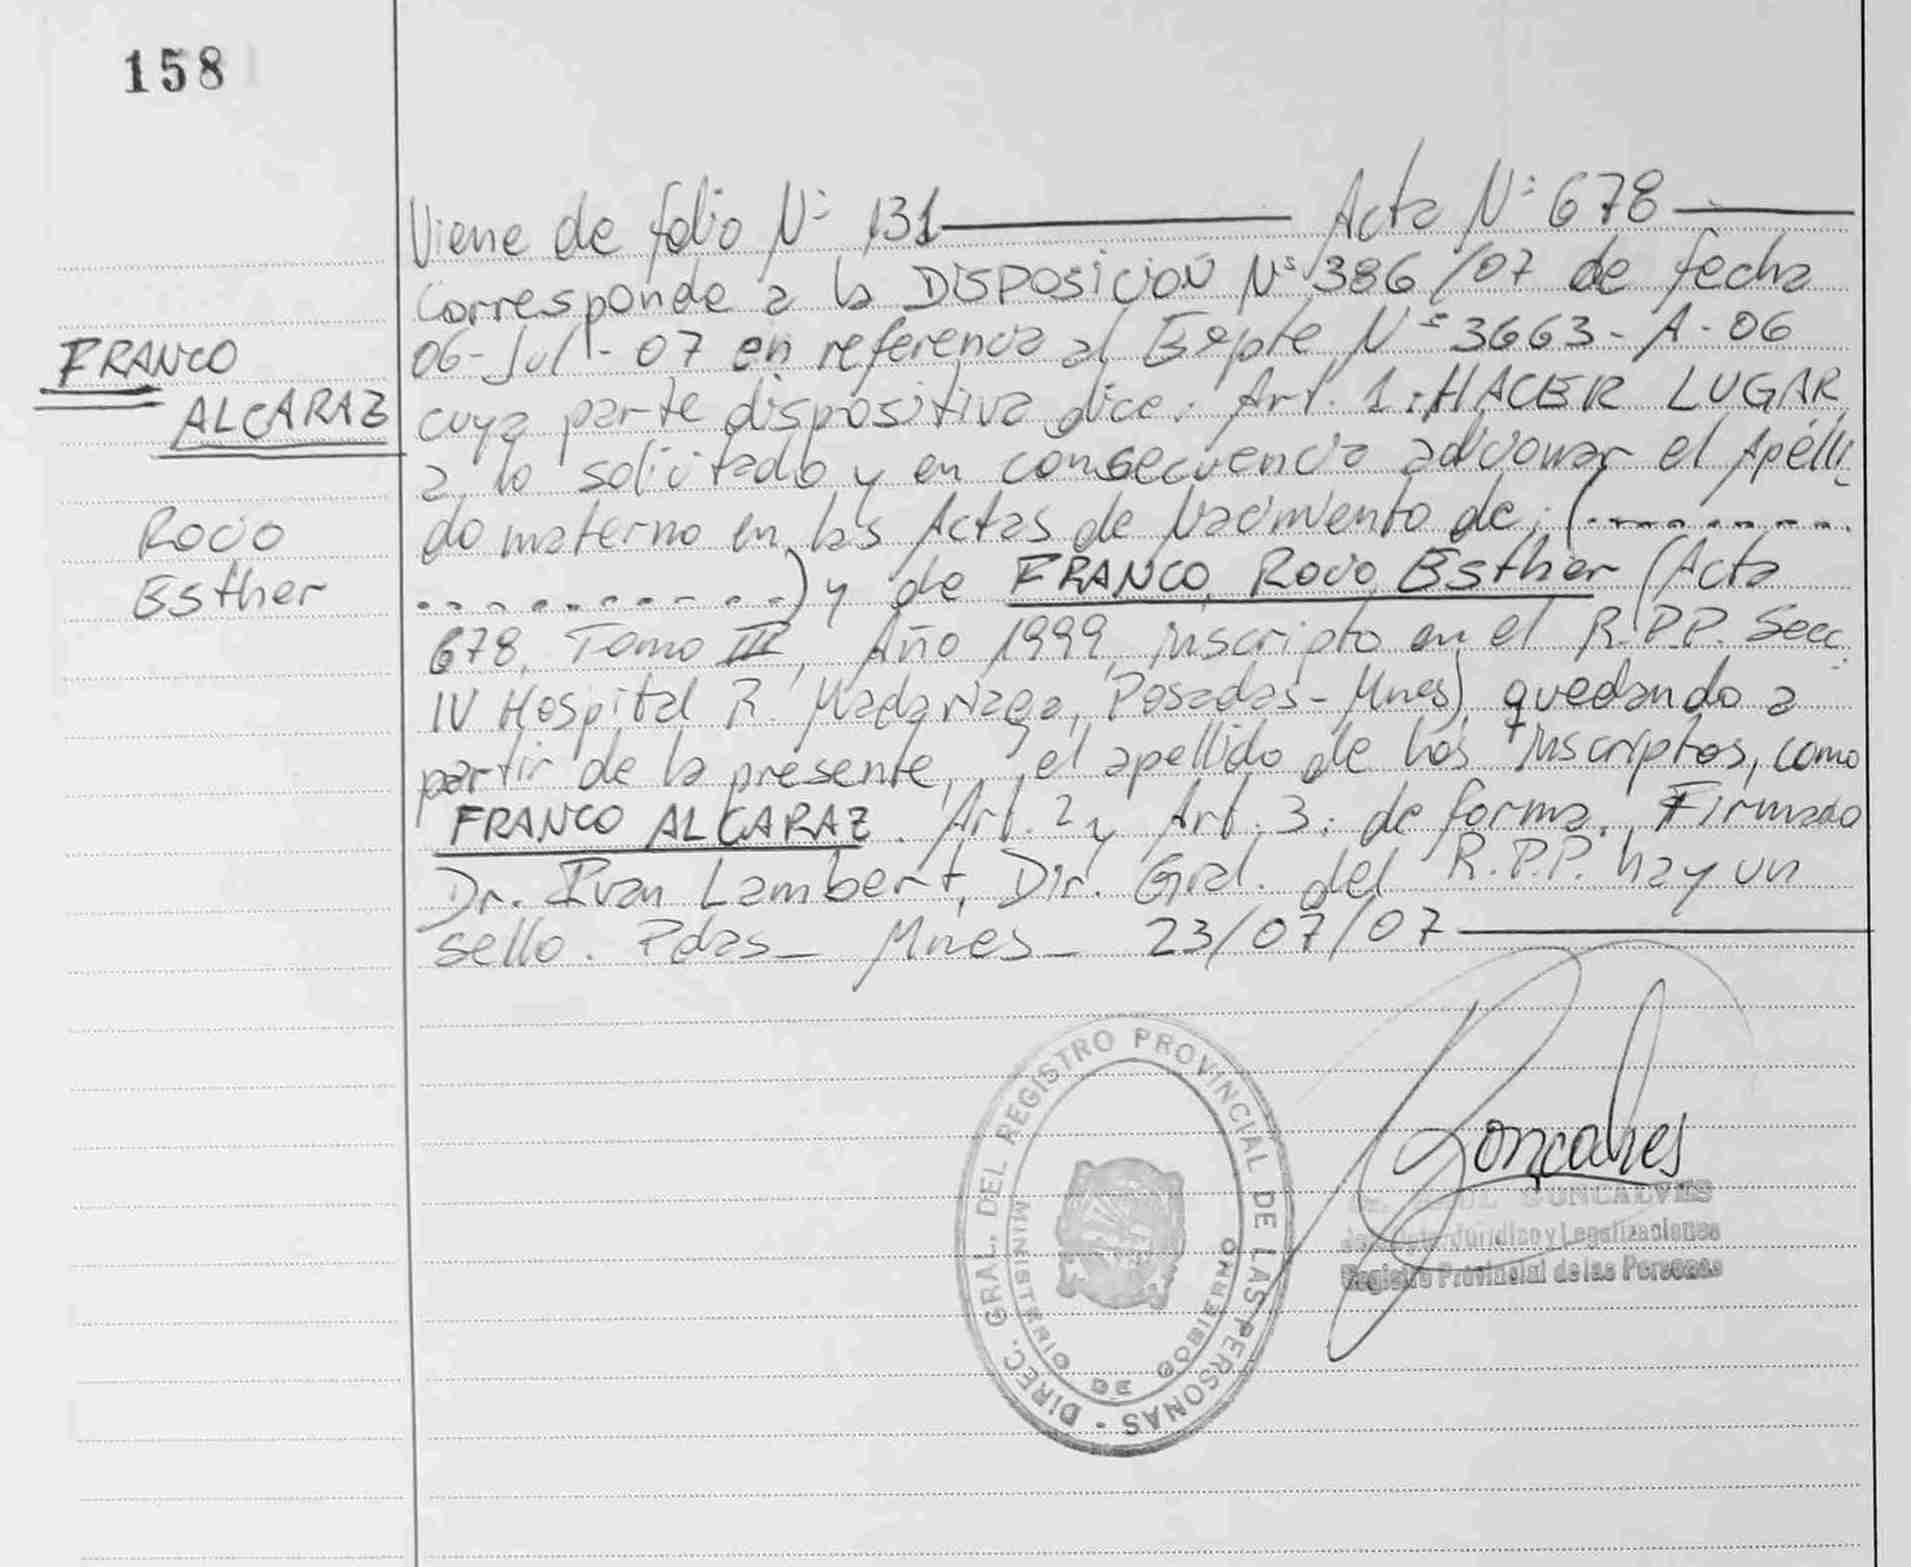 158
FRANCO
ALCARAZ
Rocio
Esther
Viene de folio Nº 131 Acta Nº 678
Corresponde a la DISPOSICION Nº 386/07 de fecha
06-Jul-07 en referencia al Expte Nº 3663-A-06
cuya parte dispositiva dice: Art. 1: HACER LUGAR
a lo solicitado y en consecuencia adicionar el Apelli
do materno en las Actas de Nacimiento de: (.........
..........) y de FRANCO, Rocio Esther (Acta
678, Tomo III, Año 1999, inscripto en el R.P.P. Secc.
IV Hospital R. Madariaga, Posadas-Mnes) quedando a
partir de la presente, el apellido de los inscriptos, como
FRANCO ALCARAZ. Art. 2 y Art. 3: de forma. Firmado
Dr. Ivan Lambert, Dir. Gral. del R.P.P. hay un
sello. Pdas_ Mnes_ 23/07/07
DIREC. GRAL. DEL REGISTRO PROVINCIAL DE LAS PERSONAS -
MINISTERIO DE GOBIERNO
Goncalves
GONCALVES
Jurídico y Legalizaciones
Registro Provincial de las Personas